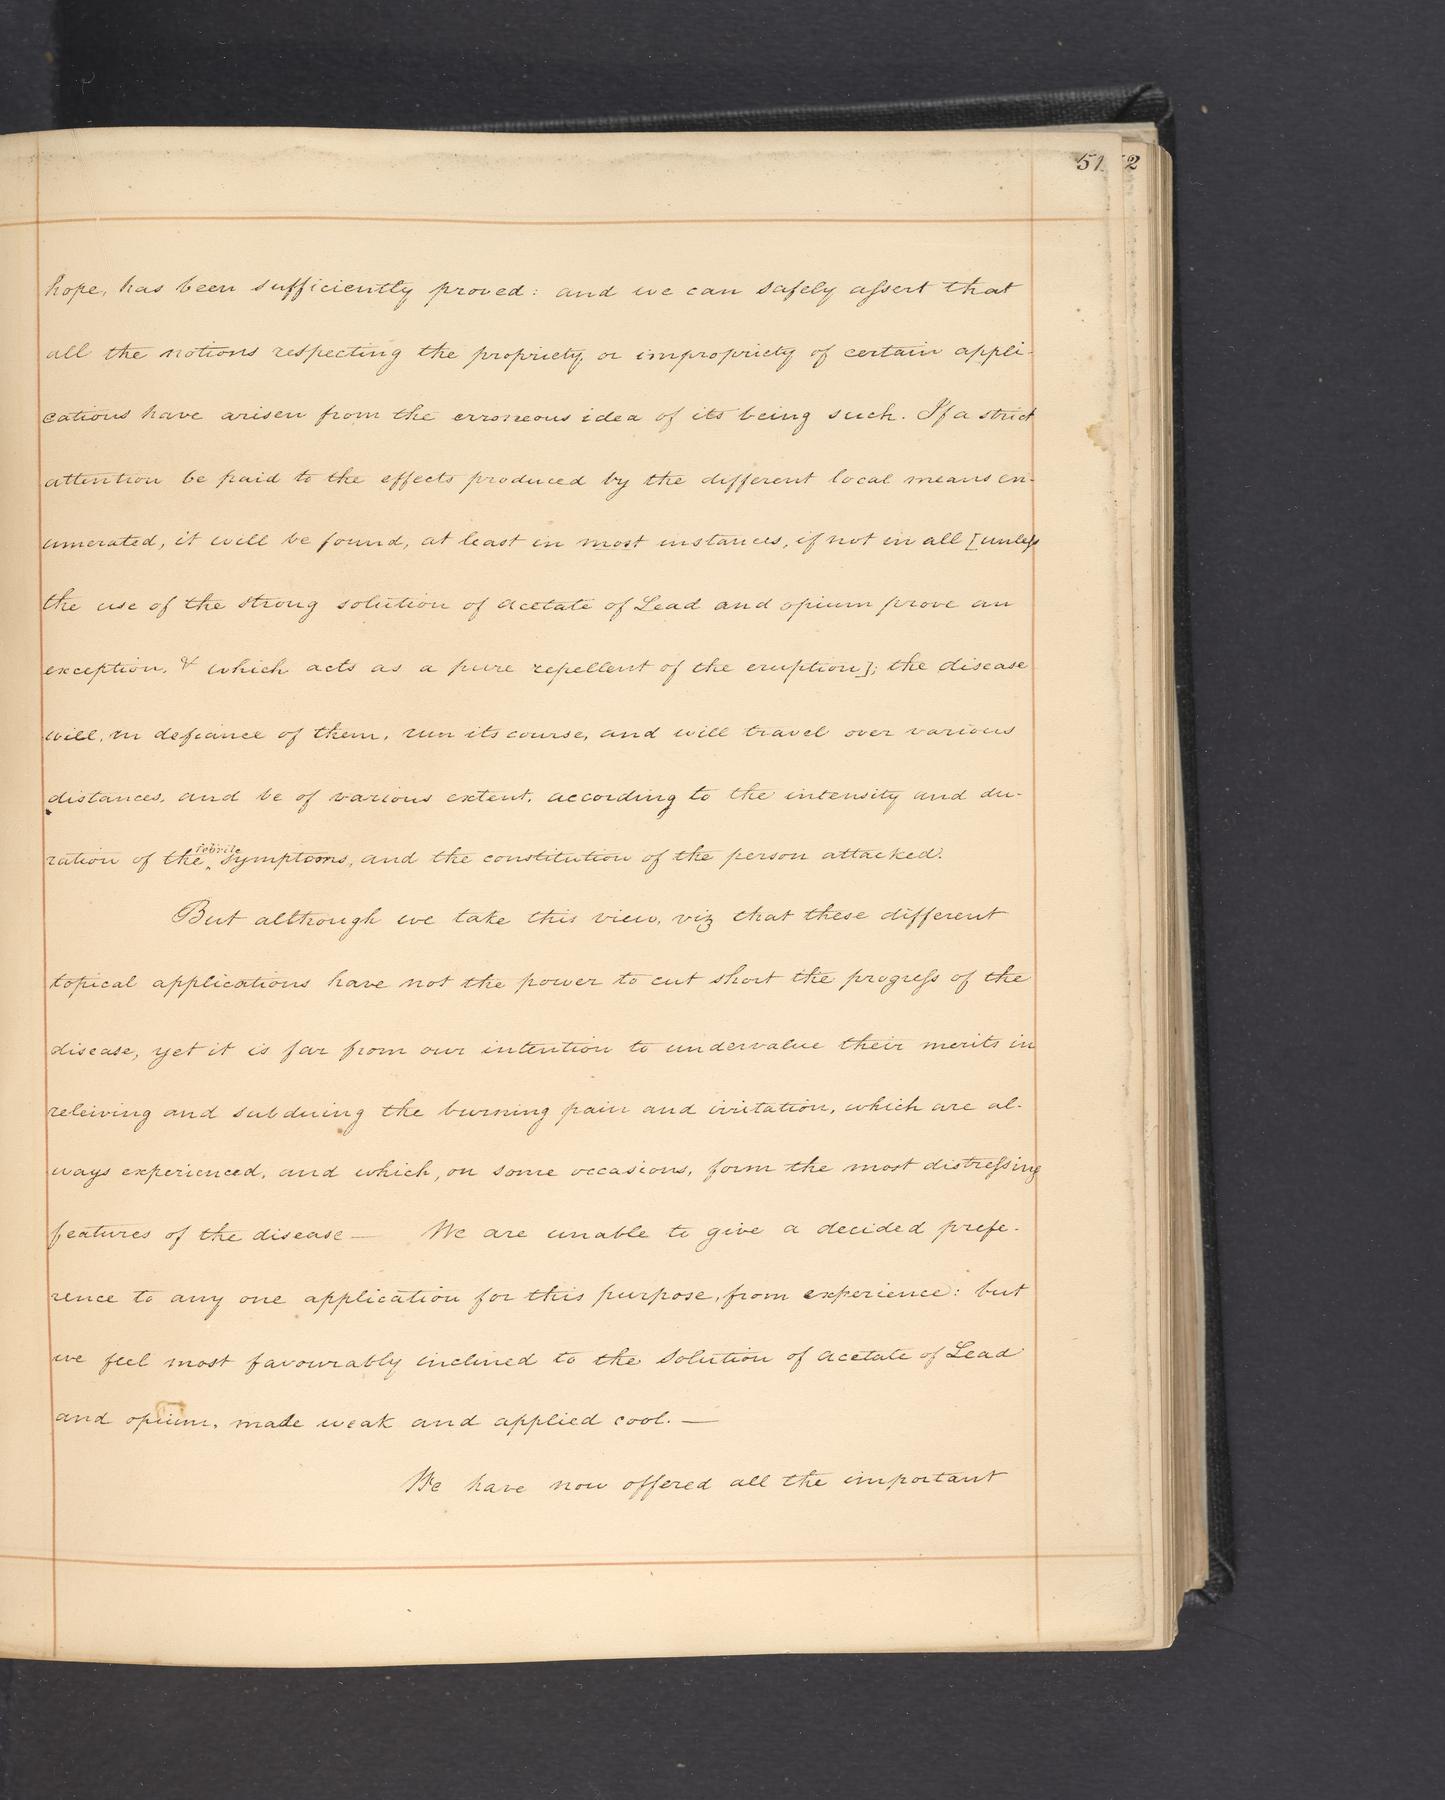 51
2
hope, has been sufficiently proved: and we can safely assert that
all the notions respecting the propriety, or impropriety of certain appli-
cations have arisen from the erroneous idea of its being such. If a strict
attention be paid to the effects produced by the different local means en-
umerated, it will be found, at least in most instances, if not in all [unless
the use of the strong solution of acetate of Lead and opium prove an
exception, & which acts as a pure repellent of the eruption]; the disease
will, in defiance of them, run its course, and will travel over various
distances, and be of various extent, according to the intensity and du-
febrile
ration of the ‸ symptoms, and the constitution of the person attacked.
But although we take this view, viz that these different
topical applications have not the power to cut short the progress of the
disease, yet it is far from our intention to undervalue their merits in
releiving and subduing the burning pain and irritation, which are al-
ways experienced, and which, on some occasions, form the most distressing
features of the disease — We are unable to give a decided prefe-
rence to any one application for this purpose, from experience: but
we feel most favourably inclined to the solution of acetate of Lead
and opium, made weak and applied cool. —
We have now offered all the important